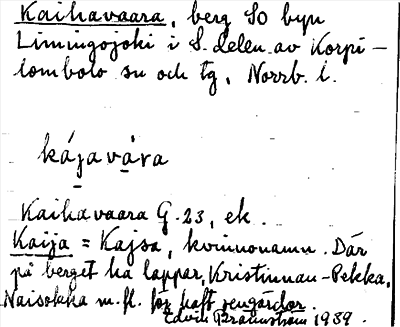 Kaihavaara, berg SO byn
Limingojoki i S. delen av Korpi-
lombolo sn och tg, Norrb. l.
kájavára
Kaihavaara G. 23, ek.
Kaija = Kajsa, kvinnonamn. Där
på berget ha lappar, Kristinnan-Pekka,
Naisokka m. fl. haft rengärdor.
Edvin Brännström 1939.